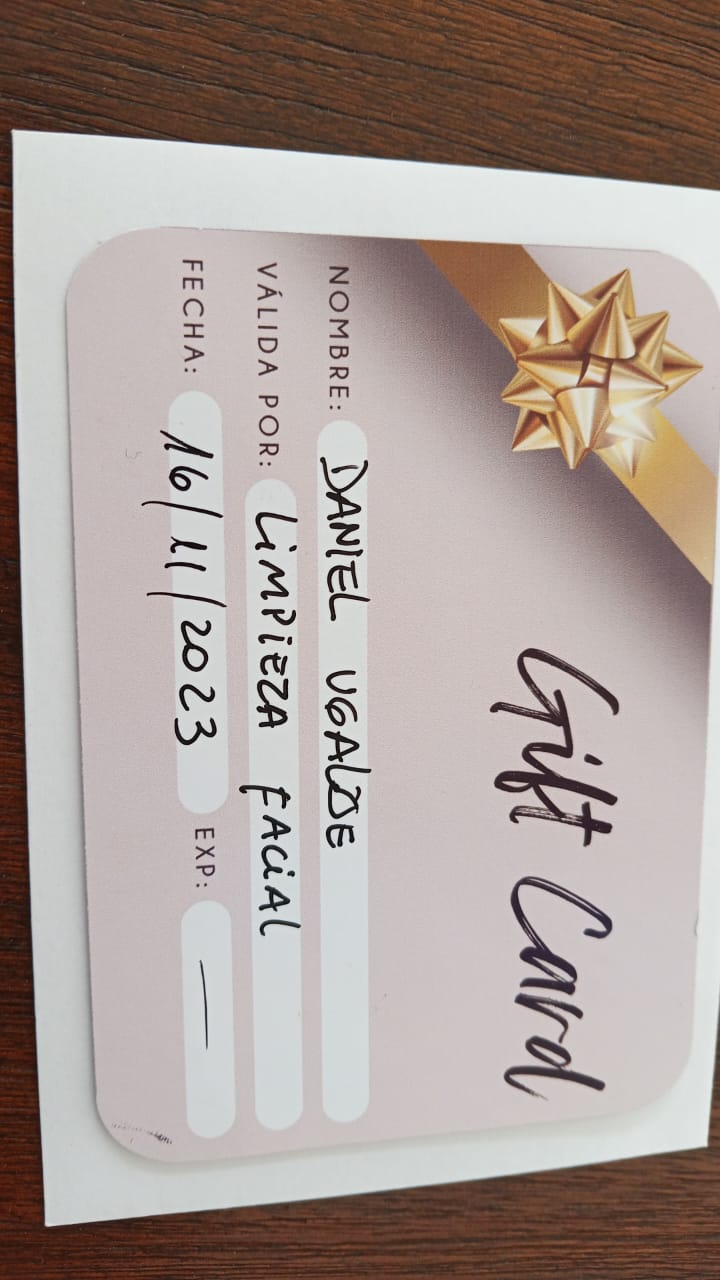 Gift Card
NOMBRE: DANIEL UGALDE
VÁLIDA POR: LIMPIEZA FACIAL
FECHA: 16/11/2023 EXP: —